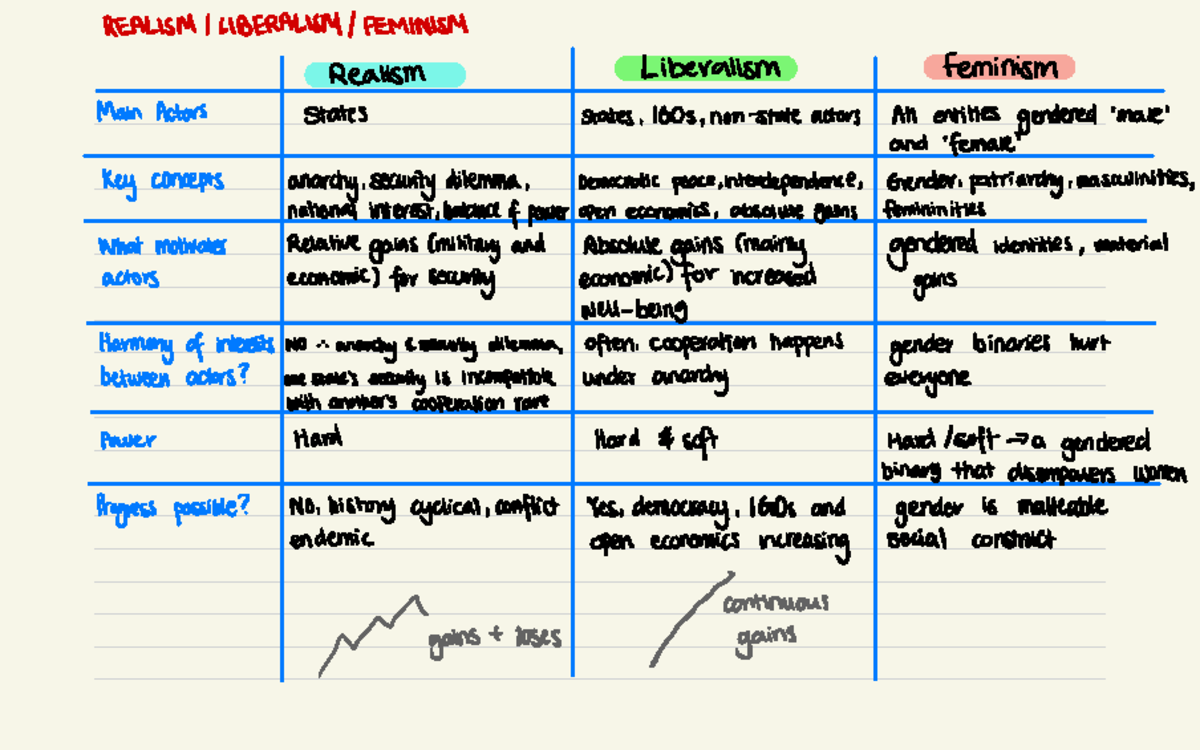 REALISM / LIBERALISM / FEMINISM
Realism
Liberalism
Feminism
Main Actors
States
States, IGOs, non-state actors
All entities gendered 'male'
and 'female'
Key concepts
anarchy, security dilemma,
national interest, balance of power
Democratic peace, interdependence,
open economics, absolute gains
Gender, patriarchy, masculinities,
femininities
What motivates
actors
Relative gains (military and
economic) for security
Absolute gains (mainly
economic) for increased
well-being
gendered identities, material
gains
Harmony of interests
between actors?
No ∴ anarchy & security dilemma,
one state's security is incompatible
with another's cooperation rare
often, cooperation happens
under anarchy
gender binaries hurt
everyone
Power
Hard
Hard & soft
Hard / soft → a gendered
binary that disempowers women
Progress possible?
No, history cyclical, conflict
endemic
Yes, democracy, IGOs and
open economics increasing
gender is malleable
social construct
gains + loses
continuous
gains